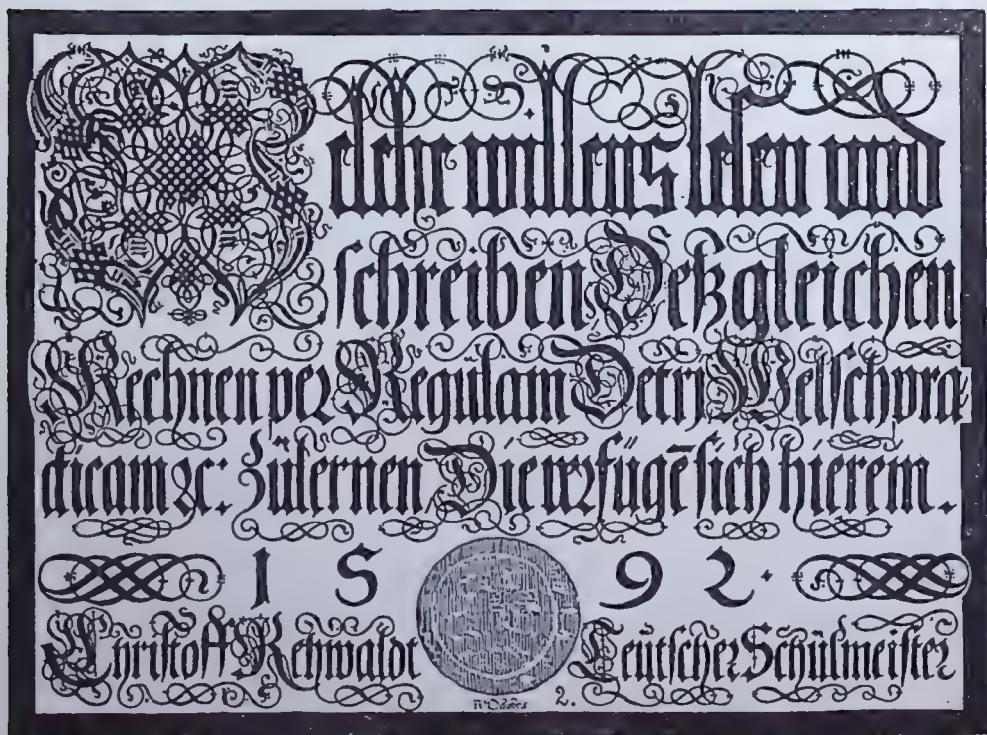 Welche willens lesen und
schreiben Deßgleichen
Rechnen per Regulam Detrj Welschpra=
cticam ꝛc: zülernen Die verfügē sich hierein.
1 5 9 2.
Christoff Rehwaldt Teutscher Schülmeister
2.